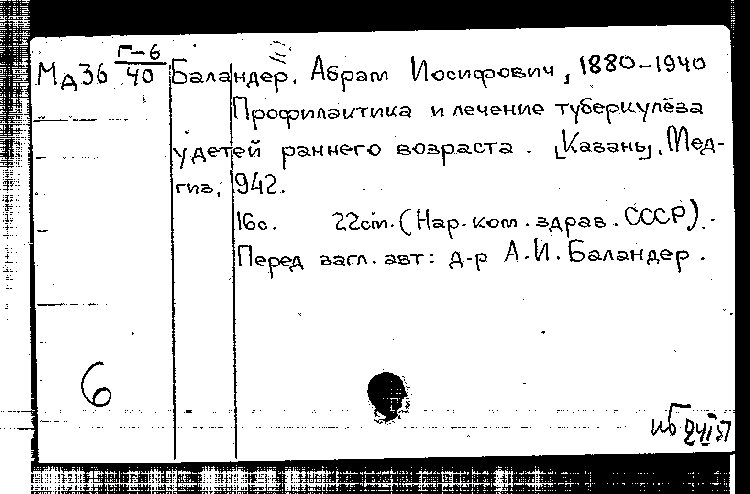 Г-6
Мд36 40 Баландер, Абрам Иосифович, 1880-1940
Профилактика и лечение туберкулёза
у детей раннего возраста. [Казань], Мед-
гиз, 942.
16с. 22cm. (Нар. ком. здрав. СССР).-
Перед загл. авт: д-р А.И. Баландер.
6